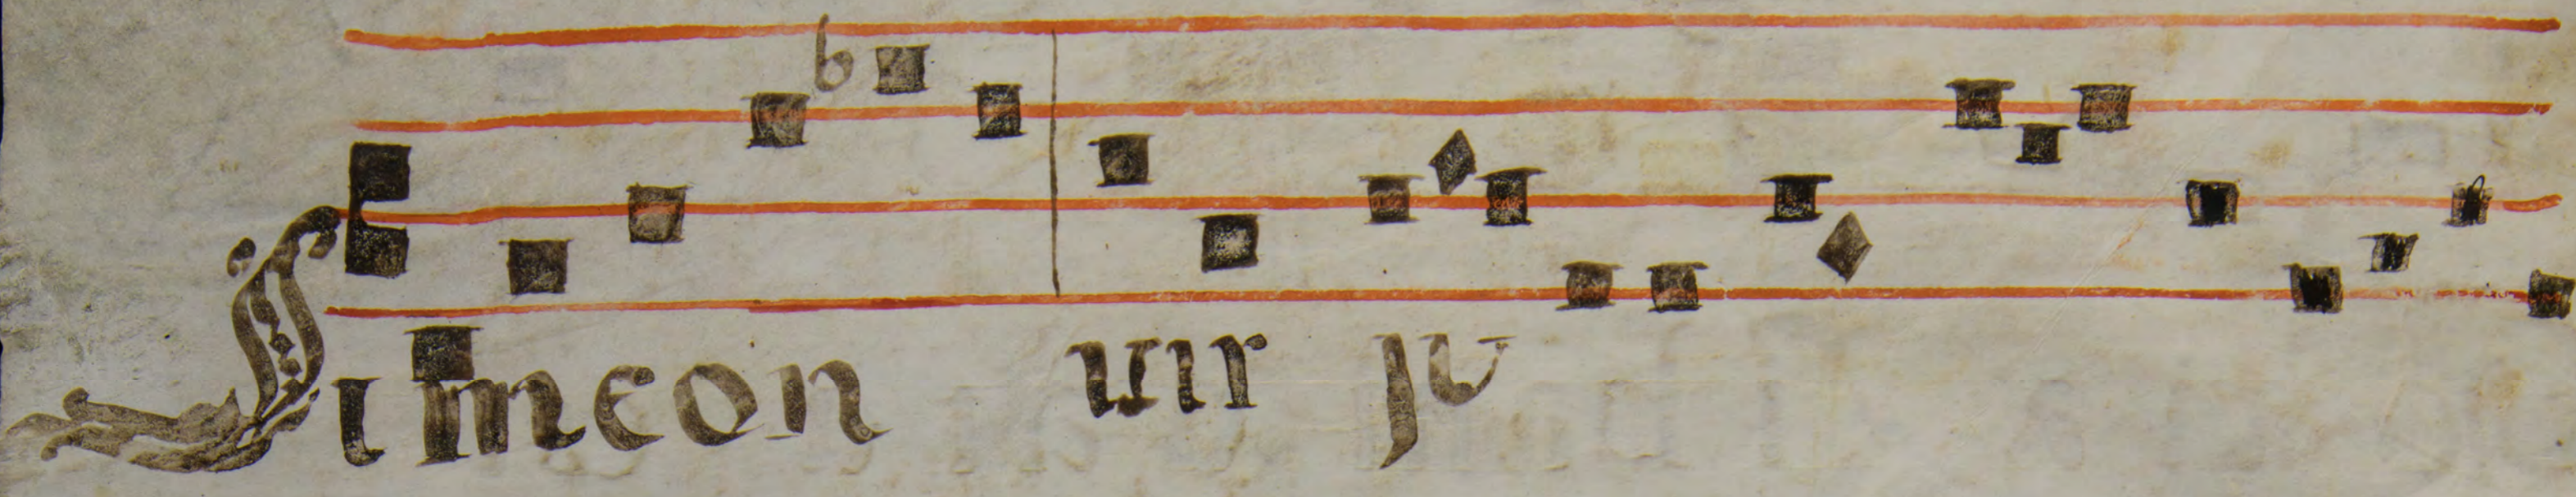 b
Simeon uir ju